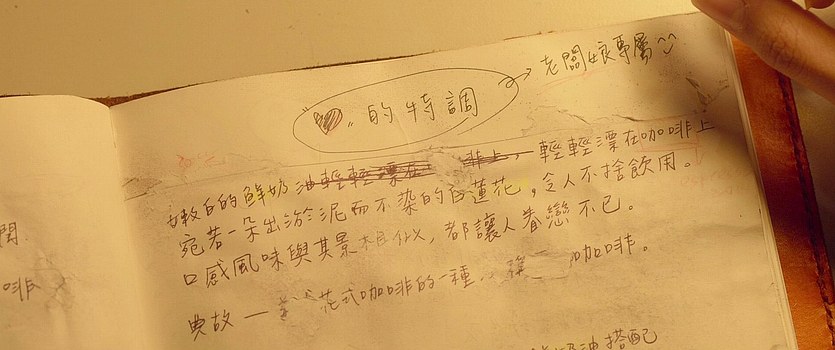 老闆娘專屬^^
"♥"的特調
嫩白的鮮奶油輕輕漂在咖啡上，輕輕漂在咖啡上
宛若一朵出淤泥而不染的白蓮花，令人不捨飲用。
口感風味與其景很似，都讓人眷戀不已。
典故一 花式咖啡的一種。 咖啡。
奶油搭配
啡